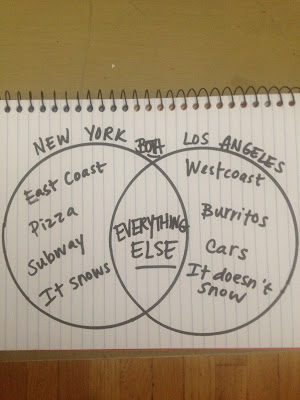 NEW YORK BOTH LOS ANGELES
East Coast
Pizza
Subway
It snows
EVERYTHING
ELSE
Westcoast
Burritos
Cars
It doesn't
snow